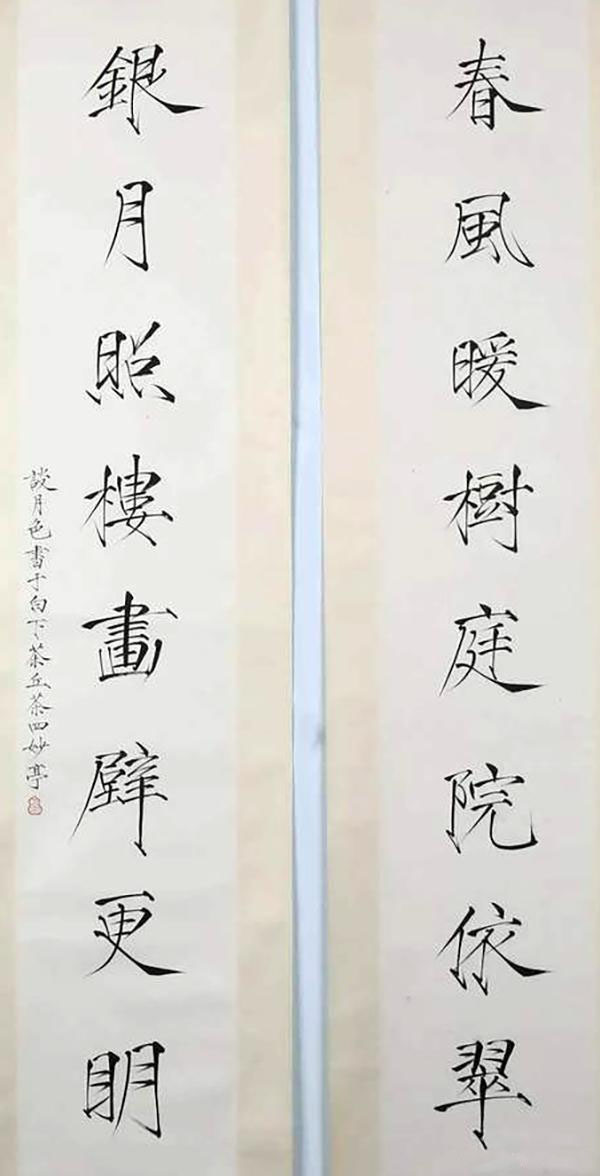 春風暖樹庭院依翠
銀月照樓畫壁更明
談月色書于白下茶丘茶四妙亭